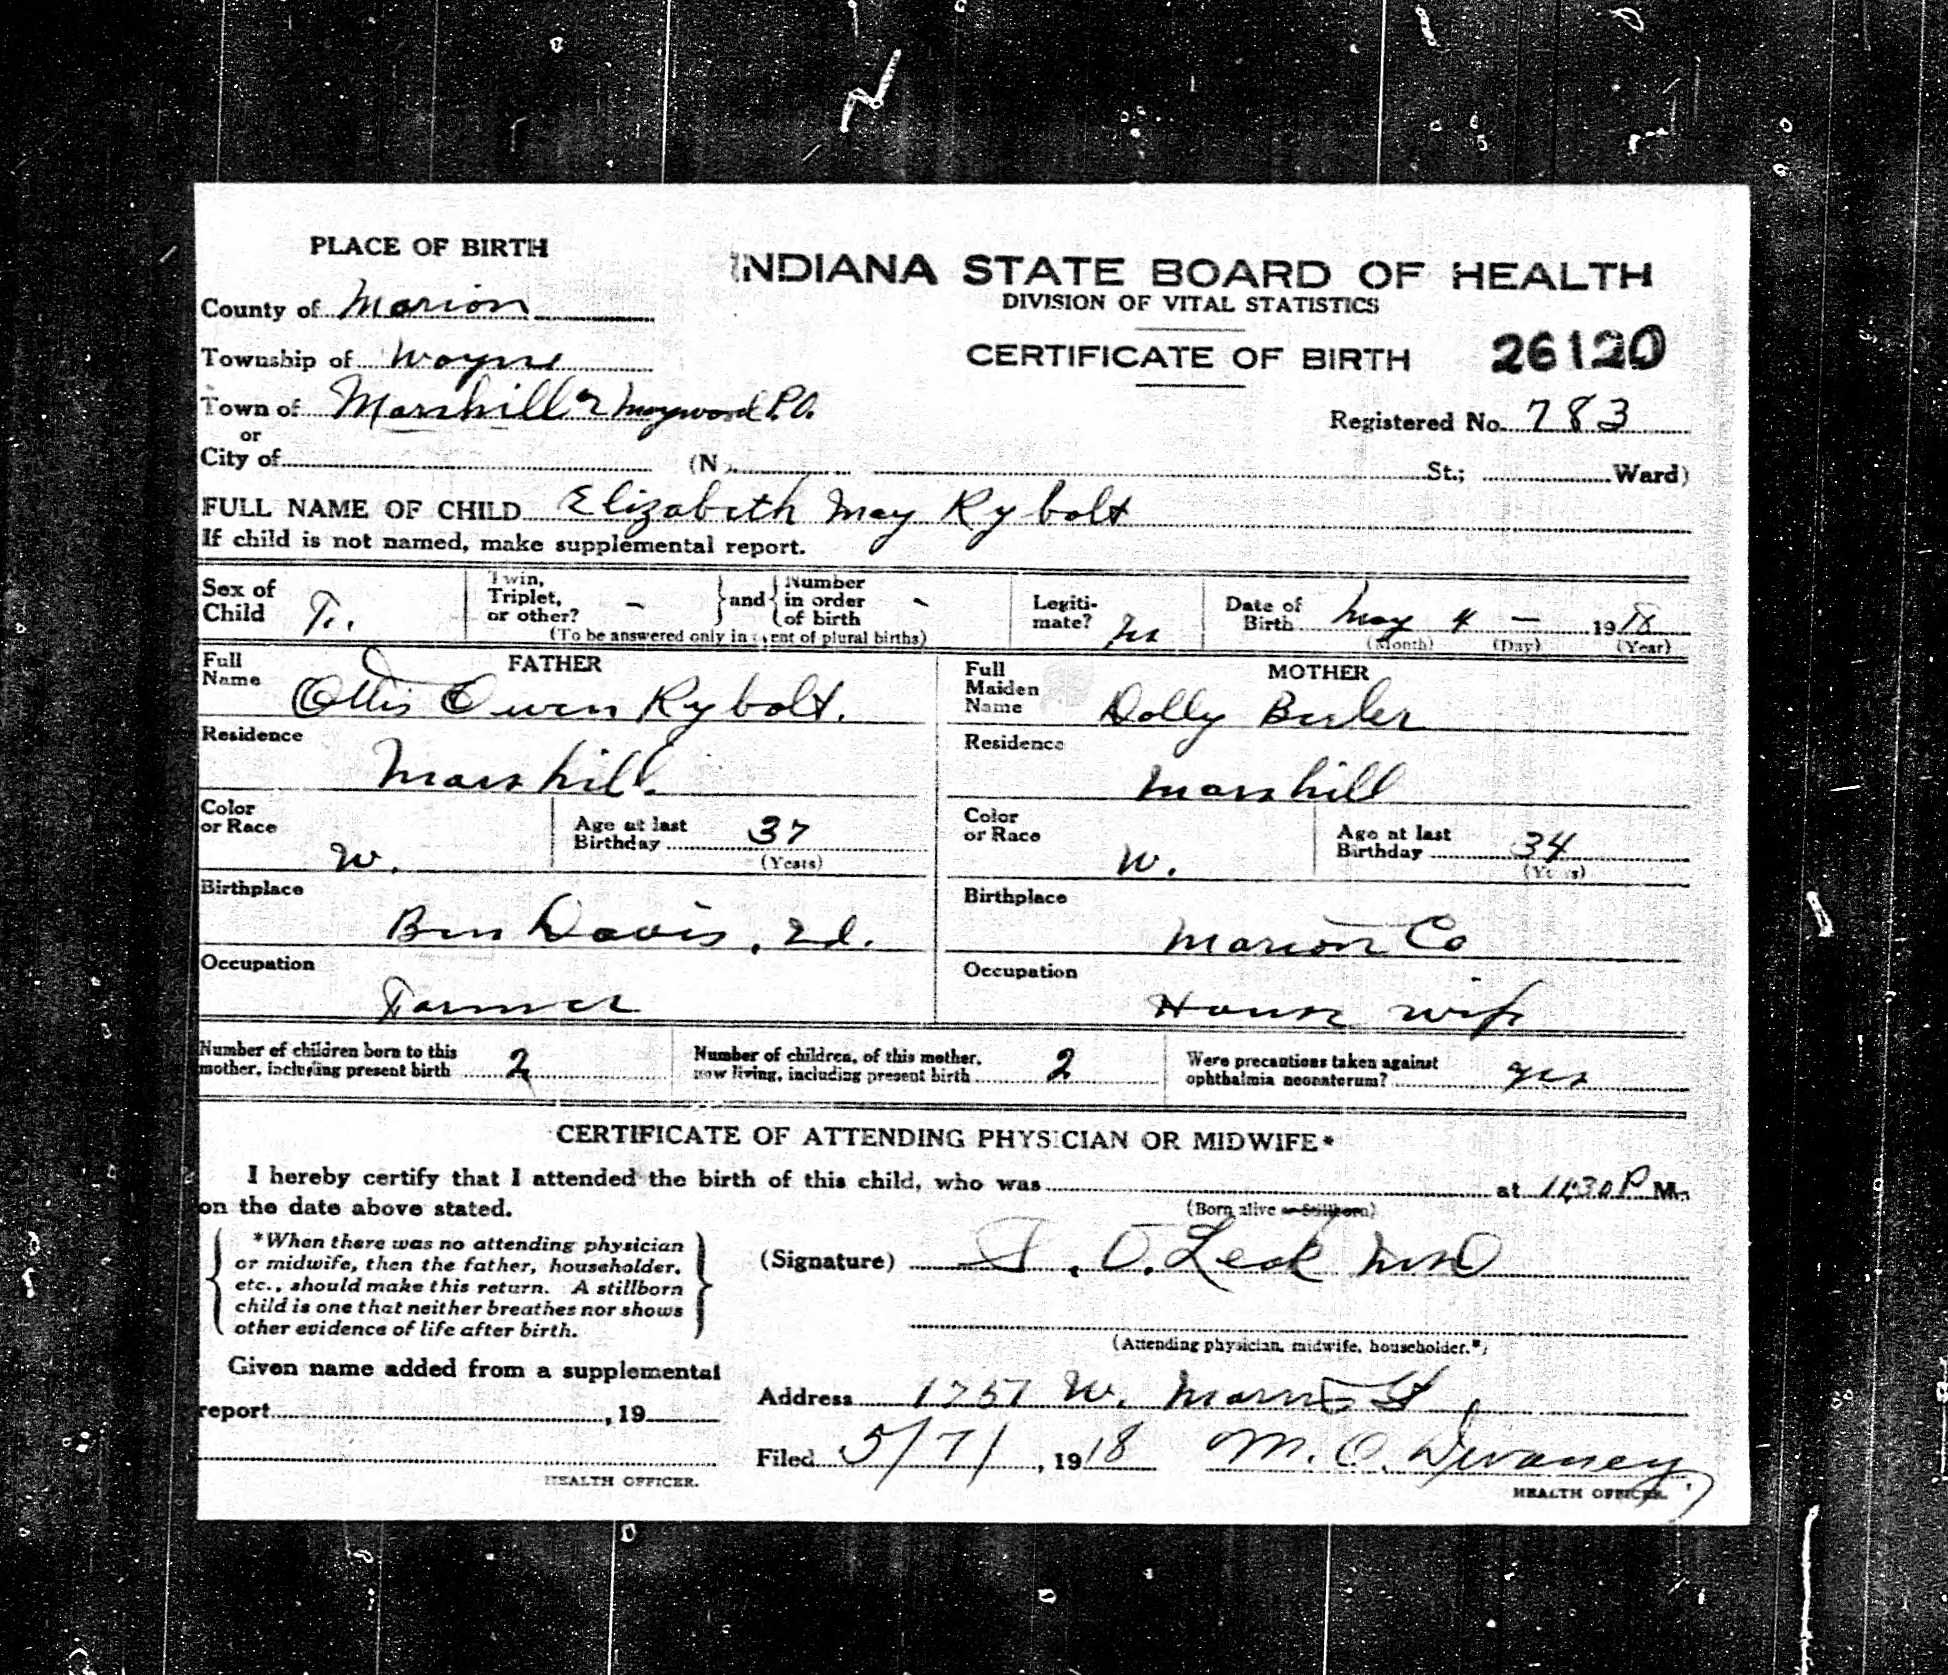 PLACE OF BIRTH
INDIANA STATE BOARD OF HEALTH
DIVISION OF VITAL STATISTICS
County of Marion
CERTIFICATE OF BIRTH 26120
Township of Wayne
Town of Marshill or Maywood P.O.
Registered No. 783
or
City of (No. St.; Ward)
FULL NAME OF CHILD Elizabeth May Rybolt
If child is not named, make supplemental report.
Sex of Child F.
Twin, Triplet, or other? - and Number in order of birth -
(To be answered only in event of plural births)
Legitimate? Yes
Date of Birth May 4 - 1918
(Month) (Day) (Year)
FATHER
Full Name Ottis Owen Rybolt.
MOTHER
Full Maiden Name Dolly
Residence Marshill.
Residence Marshill
Color or Race W.
Age at last Birthday 37
(Years)
Color or Race W.
Age at last Birthday 34
(Years)
Birthplace Ben Davis, Ind.
Birthplace Marion Co
Occupation Farmer
Occupation House wife
Number of children born to this mother, including present birth 2
Number of children, of this mother, now living, including present birth 2
Were precautions taken against ophthalmia neonatorum? yes
CERTIFICATE OF ATTENDING PHYSICIAN OR MIDWIFE*
I hereby certify that I attended the birth of this child, who was at 11:30 P M.
(Born alive or Stillborn)
on the date above stated.
*When there was no attending physician
or midwife, then the father, householder,
etc., should make this return. A stillborn
child is one that neither breathes nor shows
other evidence of life after birth.
(Signature) O. Leak MD
(Attending physician, midwife, householder.*)
Given name added from a supplemental
report , 19
HEALTH OFFICER.
Address 1757 W. Morris St,
Filed 5/7/, 1918 M. O. Devaney
HEALTH OFFICER.